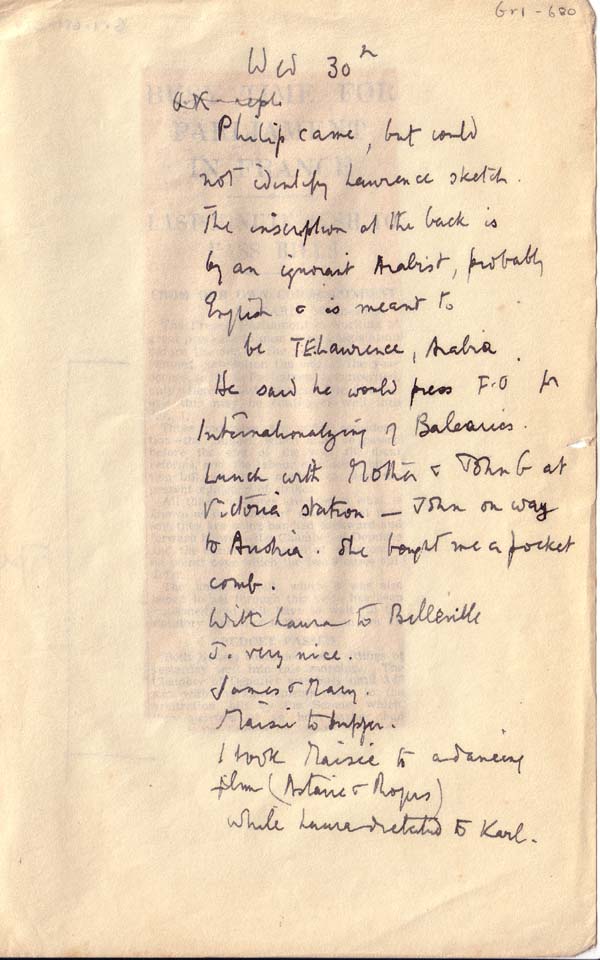 Gr1 - 680
Wed 30th
Philip came, but could
not identify Lawrence sketch.
The inscription at the back is
by an ignorant Arabist, probably
English & is meant to
be T.E. Lawrence, Arabia.
He said he would press F.O for
Internationalizing of Balearics.
Lunch with Mother & John G at
Victoria station — John on way
to Austria. She bought me a pocket
comb.
With Laura to Belleville
J. very nice.
James & Mary.
Maisie to supper.
I took Maisie to a dancing
film (Astaire & Rogers)
while Laura dictated to Karl.